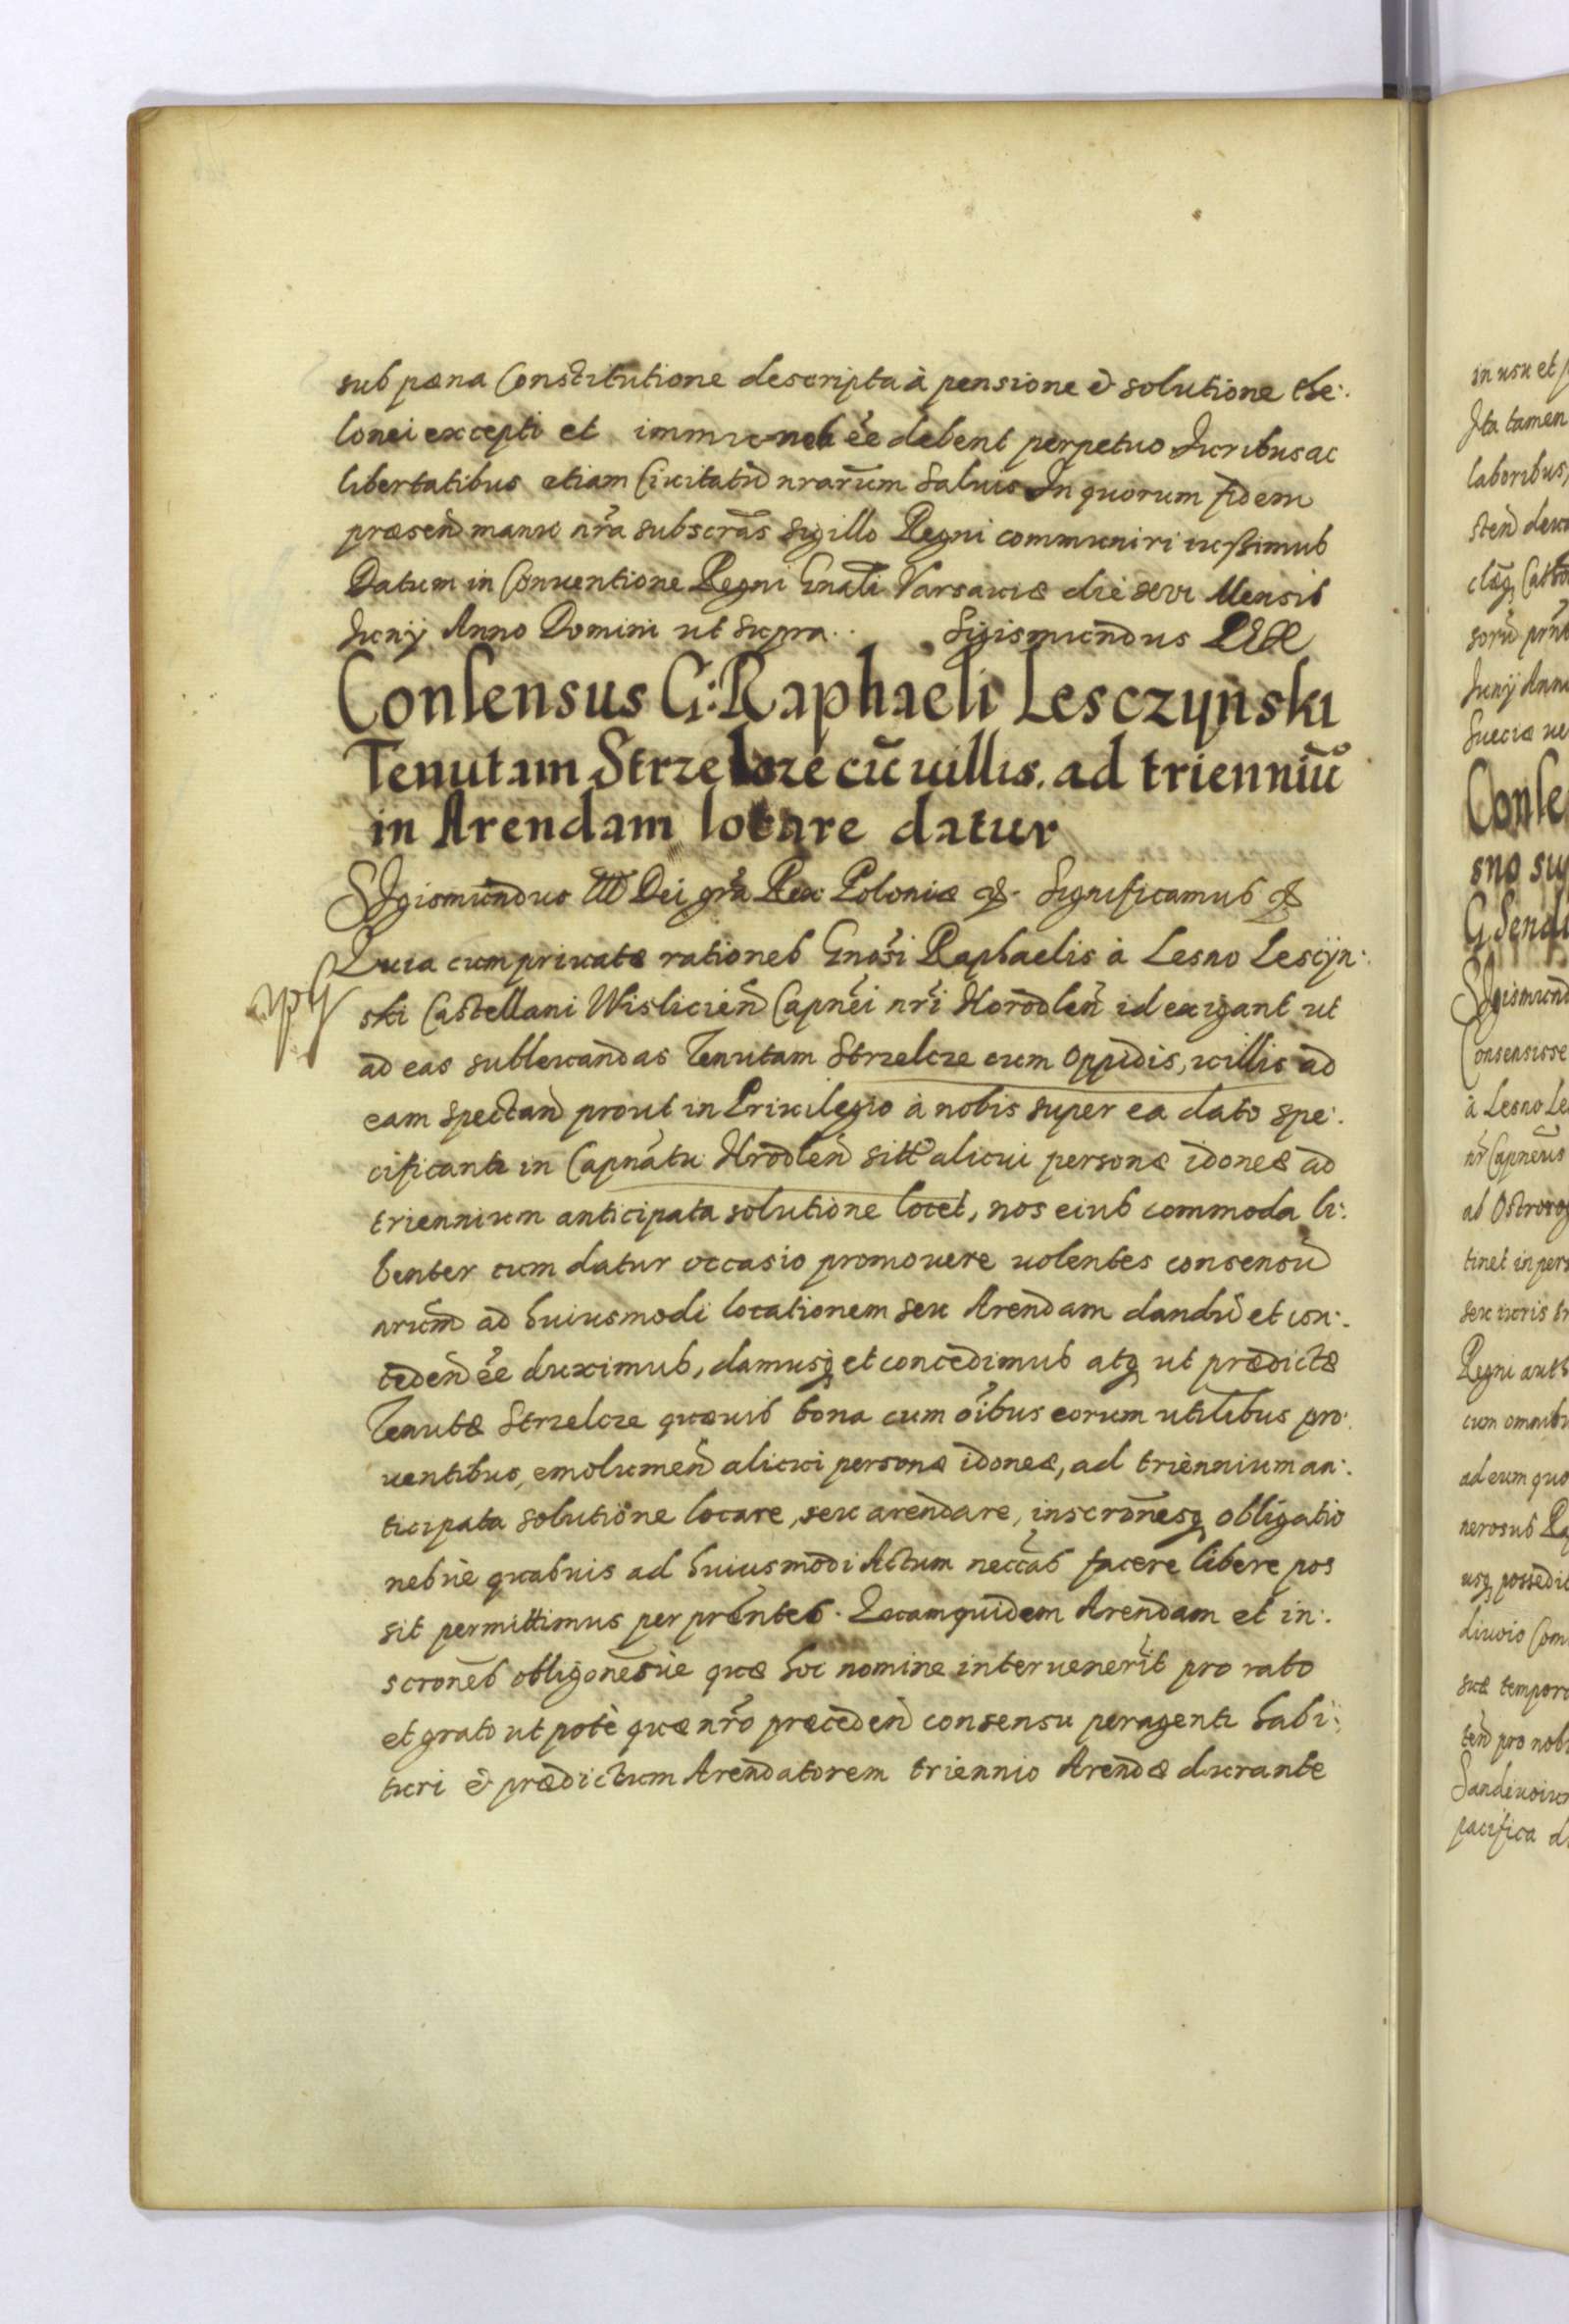 sub pæna Constitutione descripta à pensione & solutione the:
lonei excepti et immunes ẽe debent perpetuo Iuribus ac
libertatibus etiam Ciuitatũ nrarũm saluis In quorum fidem
præsen̄ manu nr̃a subscrãs sigillo Regni communiri iussimus
Datum in Conuentione Regni Gnãli Varsauiæ die xvi Mensis
Iunij Anno Domini ut supra. Sigismundus REX
Consensus G: Raphaeli Lesczynski
Tenutam Strzelcze cũ uillis. ad trienniũ
in Arendam locare datur
SIgismundus III Dei grã Rex Poloniæ & Significamus &
Quia cum priuatæ rationes Gnõsi Raphaelis à Lesno Lescÿn:
ski Castellani Wislicien̄ Capnẽi nr̃i Horodlen̄ id exigant ut
ad eas subleuandas Tenutam Strzelcze cum Oppidis, uillis ad
eam spectan̄ prout in Priuilegio à nobis super ea dato spe:
cificantr in Capnãtu Hrodlen̄ sitt alicui personæ idoneæ ad
triennium anticipata solutione locet, nos eius commoda li:
benter cum datur occasio promouere uolentes consensũ
nrũm ad huiusmodi locationem seu Arendam dandũ et con:
ceden̄ ẽe duximus, damusq et concedimus atq ut prædictæ
Tenutæ Strzelcze quæuis bona cum õibus eorum utilibus pro:
uentibus, emolumen̄ alicui personæ idoneæ, ad triennium an:
ticipata solutione locare, seu arendare, inscrõnesq obligatio
nesue quasuis ad huiusmodi Actum neccãs facere libere pos
sit permittimus per prãntes. Quamquidem Arendam et in:
scrõnes obligõnesue quæ hoc nomine interuenerĩt pro rato
et grato ut potè quæ nrõ præceden̄ consensu peragentr habi:
turi & prædictum Arendatorem triennio Arendæ durante